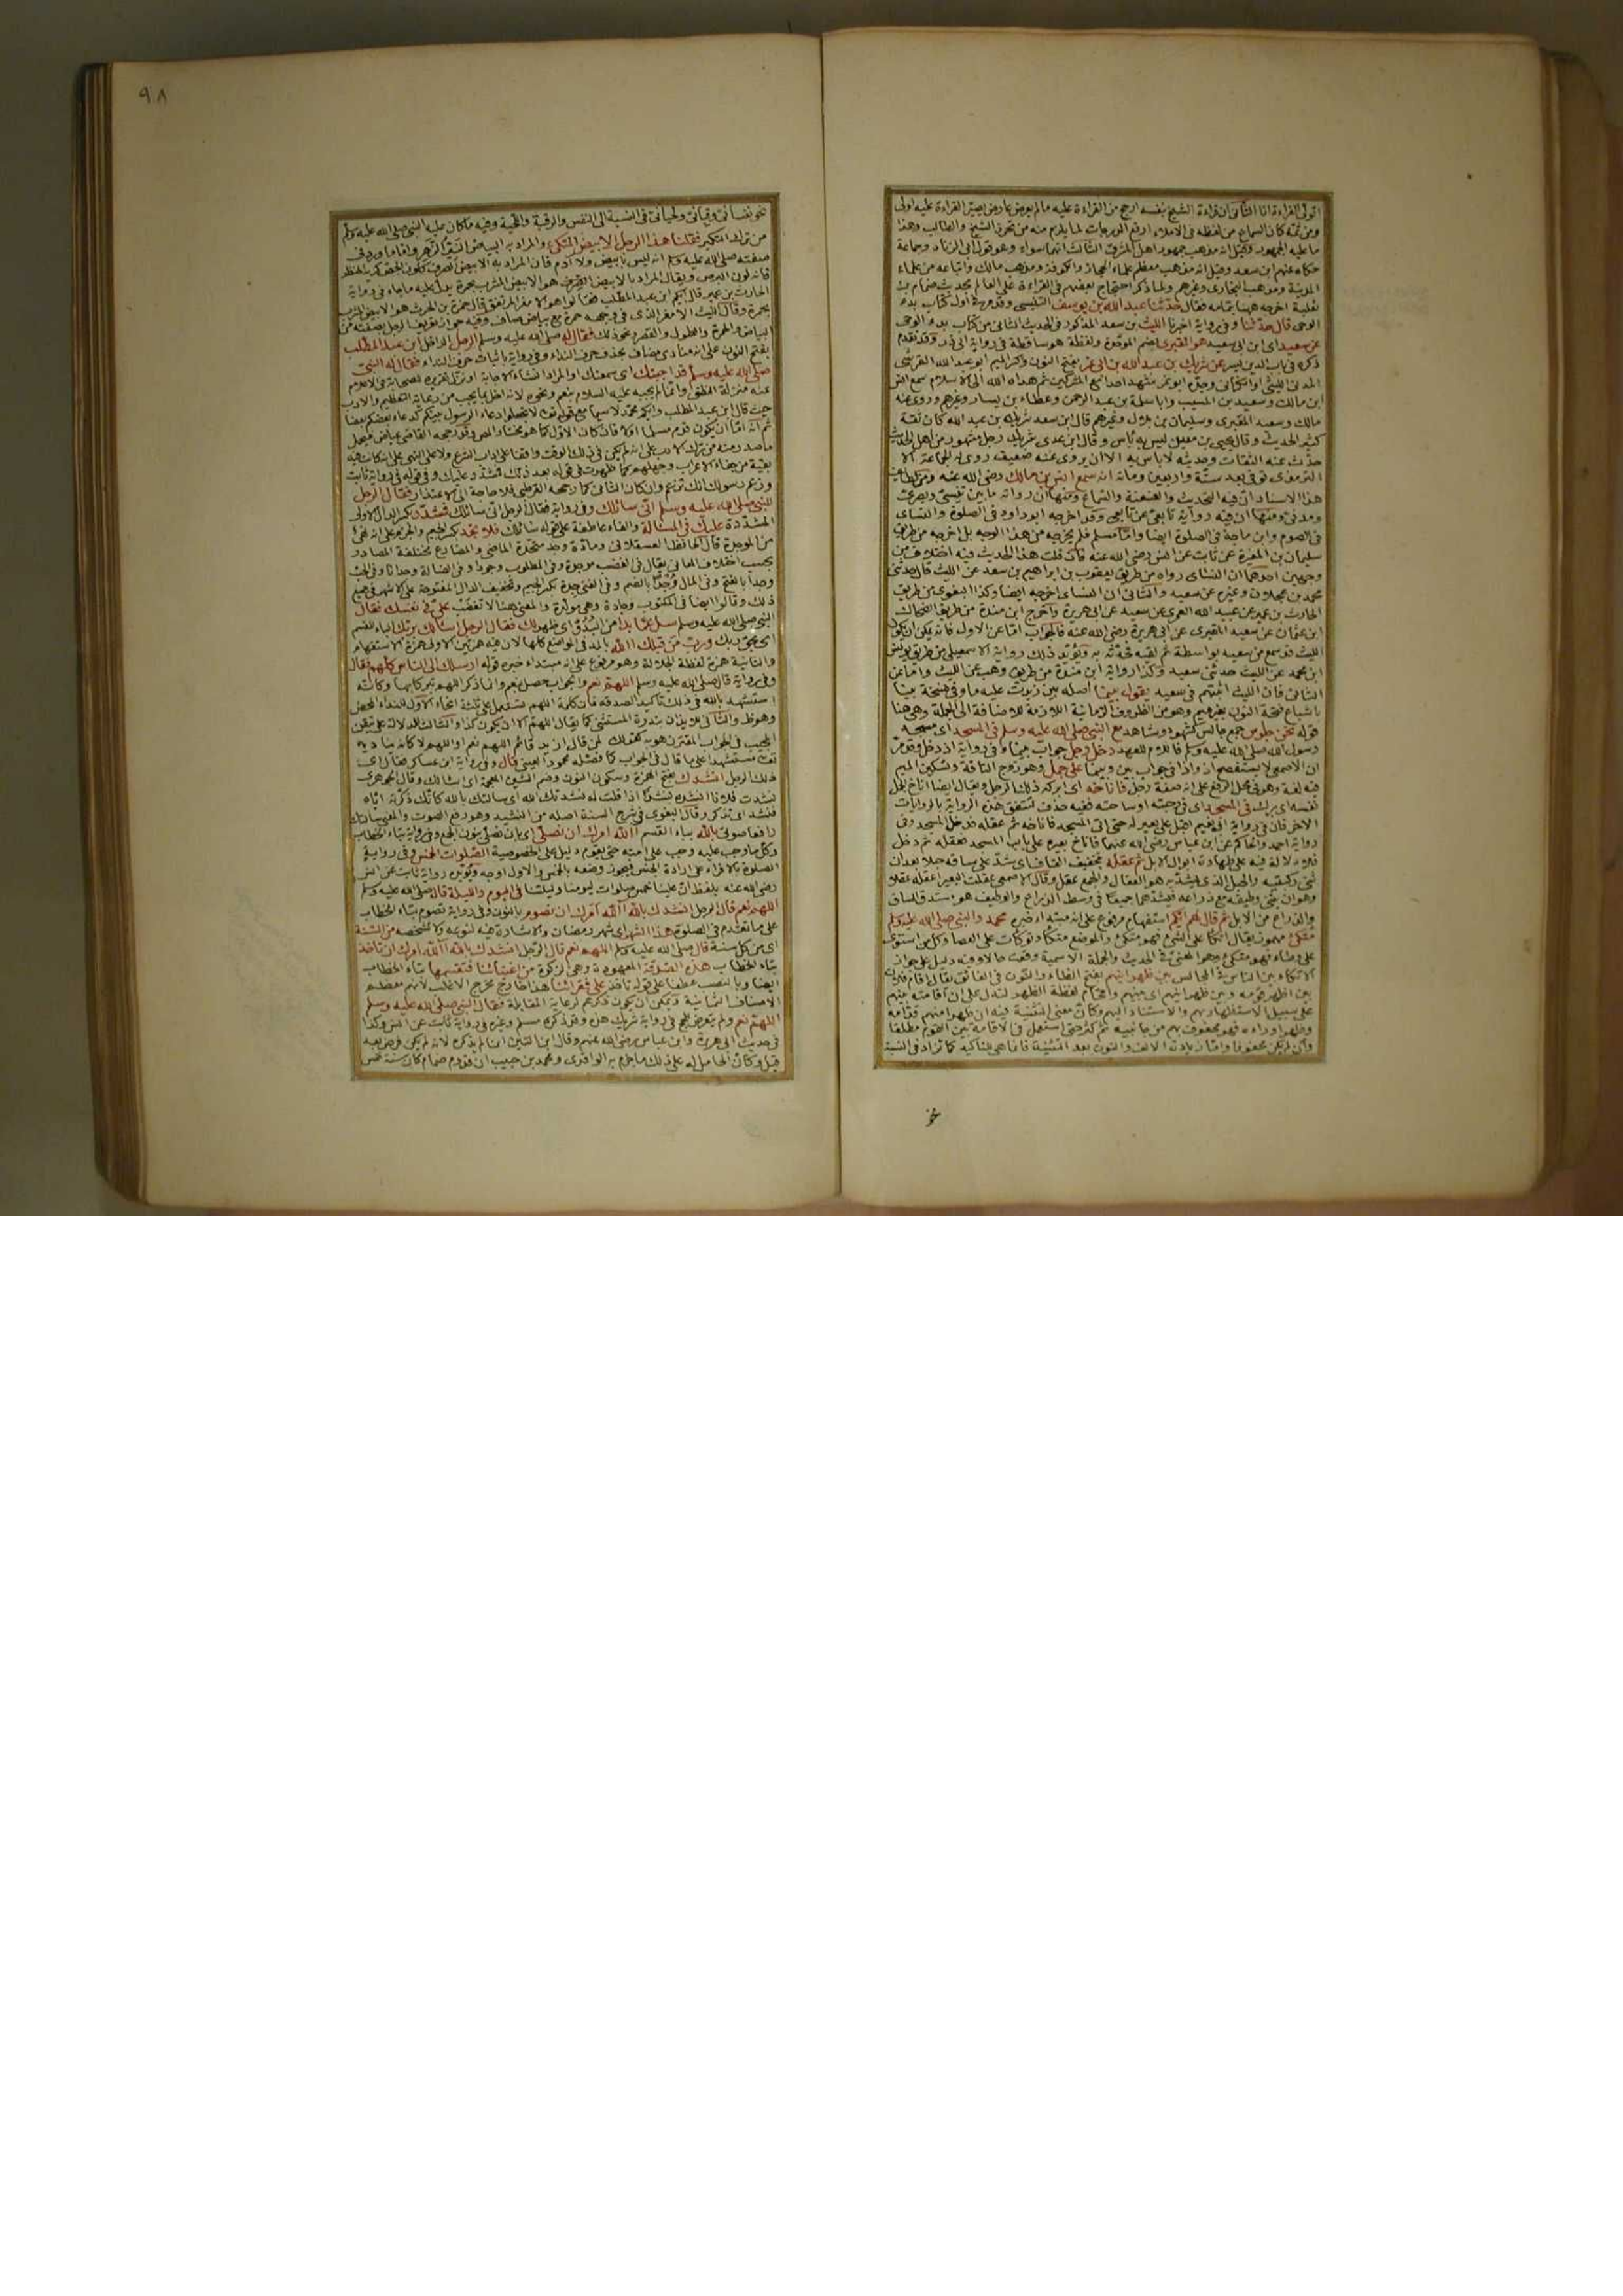 اقوى القراءة اذا الثانى ان قراءة الشيخ بنفسه ارجح من القراءة عليه ما لم يعرض عارض يصير القراءة عليه اولى
ومن ثمة كان السماع من لفظه فى الاملاء ارفع الدرجات لما يلزم منه من تحرز الشيخ والطالب وهذا
ما عليه الجمهور وقيل انه مذهب جمهور اهل المشرق الثالث انهما سواء وهو قول ابى الزناد وجماعة
حكاه عنهم ابن سعد وقيل انه مذهب معظم علماء الحجاز والكوفة ومذهب مالك واتباعه من علماء
المدينة ومذهب البخارى وغيرهم ولما ذكر احتجاج بعضهم فى القراءة على العالم بحديث ضمام بن
ثعلبة اخرجه ههنا بتمامه فقال حدثنا عبد الله بن يوسف التنيسى وقد مر فى اول كتاب بدء
الوحى قال حدثنا وفى رواية اخبرنا الليث بن سعد المذكور فى الحديث الثانى من كتاب بدء الوحى
عن سعيد اى ابن ابى سعيد هو المقبرى بضم الموحدة ولفظة هو ساقطة فى رواية ابى ذر وقد تقدم
ذكره فى باب الدين يسر عن شريك بن عبد الله بن ابى نمر بفتح النون وكسر الميم ابو عبد الله القرشى
المدنى الليثى او الكنانى وجده ابو نمر شهد احدا مع المشركين ثم هداه الله الى الاسلام سمع انس
ابن مالك وسعيد بن المسيب وابا سلمة بن عبد الرحمن وعطاء بن يسار وغيرهم وروى عنه
مالك وسعيد المقبرى وسليمان بن بلال وغيرهم قال ابن سعد شريك بن عبد الله كان ثقة
كثير الحديث وقال يحيى بن معين ليس به بأس وقال ابن عدى شريك رجل مشهور من اهل الحديث
حدث عنه الثقات وحديثه لا باس به الا ان يروى عنه ضعيف روى له الجماعة الا
الترمذى توفى بعد سنة واربعين ومائة انه سمع انس بن مالك رضى الله عنه ومن لطائف
هذا الاسناد ان فيه التحديث والعنعنة والسماع ومنها ان رواته ما بين تنيسى وبصرى
ومدنى ومنها ان فيه رواية تابعى عن تابعى وقد اخرجه ابو داود فى الصلوة والنساى
فى الصوم وابن ماجة فى الصلوة ايضا واما مسلم فلم يخرجه من هذا الوجه بل اخرجه من طريق
سليمان بن المغيرة عن ثابت عن انس رضى الله عنه فان قلت هذا الحديث فيه اختلاف من
وجهين احدهما ان النساى رواه من طريق يعقوب بن ابراهيم بن سعد عن الليث قال حدثنى
محمد بن عجلان وغيره عن سعيد والثانى ان النساى اخرجه ايضا وكذا البغوى من طريق
الحارث بن عمير عن عبيد الله العمرى عن سعيد عن ابى هريرة واخرج ابن مندة من طريق الضحاك
ابن عثمان عن سعيد المقبرى عن ابى هريرة رضى الله عنه فالجواب اما عن الاول فانه يمكن ان يكون
الليث قد سمع من سعيد بواسطة ثم لقيه فحدثه به ويؤيد ذلك رواية الاسمعيلى من طريق يونس
ابن محمد عن الليث حدثنى سعيد وكذا رواية ابن مندة من طريق ابن وهب عن الليث واما عن
الثانى فان الليث اثبتهم فى سعيد يقول بينما اصله بين زيدت عليه ما وفى نسخة بينا
باشباع فتحة النون بغير ميم وهو من الظروف الزمانية اللازمة للاضافة الى الجملة وهى هنا
قوله نحن جلوس جمع جالس كشهود وشاهد مع النبى صلى الله عليه وسلم فى المسجد اى مسجد
رسول الله صلى الله عليه وسلم فاللام للعهد دخل رجل جواب بينما وفى رواية اذ دخل وقد مر
ان الاصمعى لا يستفصح اذ واذا فى جواب بين وبينما على جمل وهو زوج الناقة وتسكين الميم
فيه لغة وهو فى محل الرفع على انه صفة رجل فاناخه اى ابركه ذلك الرجل ويقال ايضا اناخ الجمل
نفسه اى برك فى المسجد اى فى رحبته او ساحته ففيه حذف لتتفق هذه الرواية بالروايات
الاخر فان فى رواية ابى نعيم اقبل على بعير له حتى اتى المسجد فاناخه ثم عقله فدخل المسجد وفى
رواية احمد والحاكم عن ابن عباس رضى الله عنهما فاناخ بعيره على باب المسجد فعقله ثم دخل
فلا دلالة فيه على طهارة ابوال الابل ثم عقله بتخفيف القاف اى شد على ساقه حبلا بعد ان
ثنى ركبتيه والحبل الذى يشد به هو العقال والجمع عقل وقال الاصمعى عقلت البعير اعقله عقلا
وهو ان يثنى وظيفه مع ذراعه فيشدهما جميعا فى وسط الذراع والوظيف هو مستدق الساق
والذراع من الابل ثم قال لهم ايكم استفهام مرفوع على انه مبتداء خبره محمد والنبى صلى الله عليه وسلم
متكئ مهموز يقال اتكأ على الشئ فهو متكئ والموضع متكأ وتوكأت على العصا وكل من استوى
على وطاء فهو متكئ وهو المعنى فى الحديث والجملة الاسمية وقعت حالا وفيه دليل على جواز
الاتكاء بين الناس فى المجالس بين ظهرانيهم بفتح الظاء والنون فى الفائق يقال اقام فلان
بين اظهر قومه وبين ظهرانيهم اى بينهم واقحام لفظة الظهر لتدل على ان اقامته بينهم
على سبيل الاستظهار بهم والاستناد اليهم وكان معنى التثنية فيه ان ظهرا منهم قدامه
وظهرا وراءه فهو محفوف بهم من جانبيه ثم كثر حتى استعمل فى الاقامة بين القوم مطلقا
وان لم يكن محفوفا واما زيادة الالف والنون بعد التثنية فانما هى للتاكيد كما تزاد فى النسبة
نحو
٩٨
نحو نفسانى ورقبانى ولحيانى فى النسبة الى النفس والرقبة واللحية وفيه ما كان عليه النبى صلى الله عليه وسلم
من ترك التكبر فقلنا هذا الرجل الابيض المتكئ والمراد به البياض النير الزهر واما ما ورد فى
صفته صلى الله عليه وسلم انه ليس بابيض ولا آدم فان المراد به الابيض الصرف كلون الجص كريه المنظر
فانه لون البرص ويقال المراد بالابيض الصرف هو الابيض المشرب بحمرة يدل عليه ما جاء فى رواية
الحارث بن عمير قال ايكم ابن عبد المطلب فقالوا هو الامغر المرتفق قال حمزة بن الحرث هو الابيض المشرب
بحمرة وقال الليث الامغر الذى فى وجهه حمرة مع بياض صاف وفيه جواز تعريف الرجل بصفته من
البياض والحمرة والطول والقصر ونحو ذلك فقال له صلى الله عليه وسلم الرجل الداخل ابن عبد المطلب
بفتح النون على انه منادى مضاف بحذف حرف النداء وفى رواية باثبات حرف النداء فقال له النبى
صلى الله عليه وسلم قد اجبتك اى سمعتك او المراد انشاء الاجابة او نزل تقريره للصحابة فى الاعلام
عنه منزلة النطق وانما لم يجبه عليه السلام بنعم ونحوه لانه اخل بما يجب من رعاية التعظيم والادب
حيث قال ابن عبد المطلب وايكم محمد لا سيما مع قوله تعالى لا تجعلوا دعاء الرسول بينكم كدعاء بعضكم بعضا
ثم انه اما ان يكون قدم مسلما اولا فان كان الاول كما هو مختار المص وقد رجحه القاضى عياض فيحمل
ما صدر منه من ترك الادب على انه لم يكن فى ذلك الوقت واقفا على اداب الشرع ولا على النهى على انه كانت فيه
بقية من جفاء الاعراب وجهلهم كما ظهرت فى قوله بعد ذلك فمشدد عليك وفى قوله فى رواية ثابت
وزعم رسولك انك تزعم وان كان الثانى كما رجحه القرطبى فلا حاجة الى الاعتذار فقال الرجل
للنبى صلى الله عليه وسلم انى سائلك وفى رواية فقال الرجل انى سائلك فمشدد بكسر الدال الاولى
المشددة عليك فى المسئالة والفاء عاطفة على قوله سائلك فلا تجد بكسر الجيم والجزم على انه نهى
من الموجدة قال الحافظ العسقلانى ومادة وجد متحدة الماضى والمضارع مختلفة المصادر
بحسب اختلاف المعانى يقال فى الغضب موجدة وفى المطلوب وجودا وفى الضالة وجدانا وفى الحب
وجدا بالفتح وفى المال وجدا بالضم وفى الغنى جدة بكسر الجيم وتخفيف الدال المفتوحة على الاشهر فى جميع
ذلك وقالوا ايضا فى المكتوب وجادة وهى مولدة والمعنى هنا لا تغضب على فى نفسك فقال
النبى صلى الله عليه وسلم سل عما بدا من البدو اى ظهر لك فقال الرجل اسألك بربك الباء للقسم
اى بحق ربك ورب من قبلك آلله بالمد فى المواضع كلها لان فيه همزتين الاولى همزة الاستفهام
والثانية همزة لفظة الجلالة وهو مرفوع على انه مبتداء خبره قوله ارسلك الى الناس كلهم فقال
وفى رواية قال صلى الله عليه وسلم اللهم نعم والجواب حصل بنعم وانما ذكر اللهم تبركا بها وكانه
استشهد بالله فى ذلك تاكيدا لصدقه فان كلمة اللهم تستعمل على ثلثة انحاء الاول للنداء المحض
وهو ظ والثانى للايذان بندرة المستثنى كما يقال اللهم الا ان يكون كذا والثالث للدلالة على تيقن
المجيب فى الجواب المقترن هو به كقولك لمن قال ازيد قائم اللهم نعم او اللهم لا كانه يناديه
تعالى مستشهدا على ما قال فى الجواب كما فصله محمود العينى قال وفى رواية ابن عساكر فقال اى
ذلك الرجل انشدك بفتح الهمزة وسكون النون وضم الشين المعجمة اى اسالك وقال الجوهرى
نشدت فلانا انشده نشدا اذا قلت له نشدتك الله اى سالتك بالله كانك ذكرته اياه
فنشد اى تذكر وقال البغوى فى شرح السنة اصله من النشيد وهو رفع الصوت والمعنى سالتك
رافعا صوتى بالله بباء القسم آلله امرك ان نصلى اى بان نصلى بنون الجمع وفى رواية بتاء الخطاب
وكل ما وجب عليه وجب على امته حتى يقوم دليل على الخصوصية الصلوات الخمس وفى رواية
الصلوة بالافراد على ارادة الجنس فيجوز وصفه بالخمس والاول اوجه ويؤيده رواية ثابت عن انس
رضى الله عنه بلفظ ان علينا خمس صلوات ليومنا وليلتنا فى اليوم والليلة قال صلى الله عليه وسلم
اللهم نعم قال الرجل انشدك بالله آلله امرك ان نصوم بالنون وفى رواية تصوم بتاء الخطاب
على ما تقدم فى الصلوة هذا الشهر اى شهر رمضان والاشارة فيه لنوعه لا لشخصه من السنة
اى من كل سنة قال صلى الله عليه وسلم اللهم نعم قال الرجل انشدك بالله آلله امرك ان تاخذ
بتاء الخطاب هذه الصدقة المعهودة وهى الزكوة من اغنيائنا فتقسمها بتاء الخطاب
ايضا وبالنصب عطفا على قوله تاخذ على فقرائنا هذا خارج مخرج الاغلب لانهم معظم
الاصناف الثمانية ويمكن ان يكون ذكرهم لرعاية المقابلة فقال النبى صلى الله عليه وسلم
اللهم نعم ولم يتعرض للحج فى رواية شريك هذه وقد ذكره مسلم وغيره فى رواية ثابت عن انس وكذا
فى حديث ابى هريرة وابن عباس رضى الله عنهم وقال ابن التين انما لم يذكره لانه لم يكن فرض بعد
قيل وكأن الحامل له على ذلك ما جزم به الواقدى ومحمد بن حبيب ان قدوم ضمام كان سنة خمس